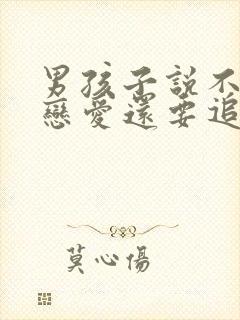 男孩子說不
戀愛還要追
莫心傷